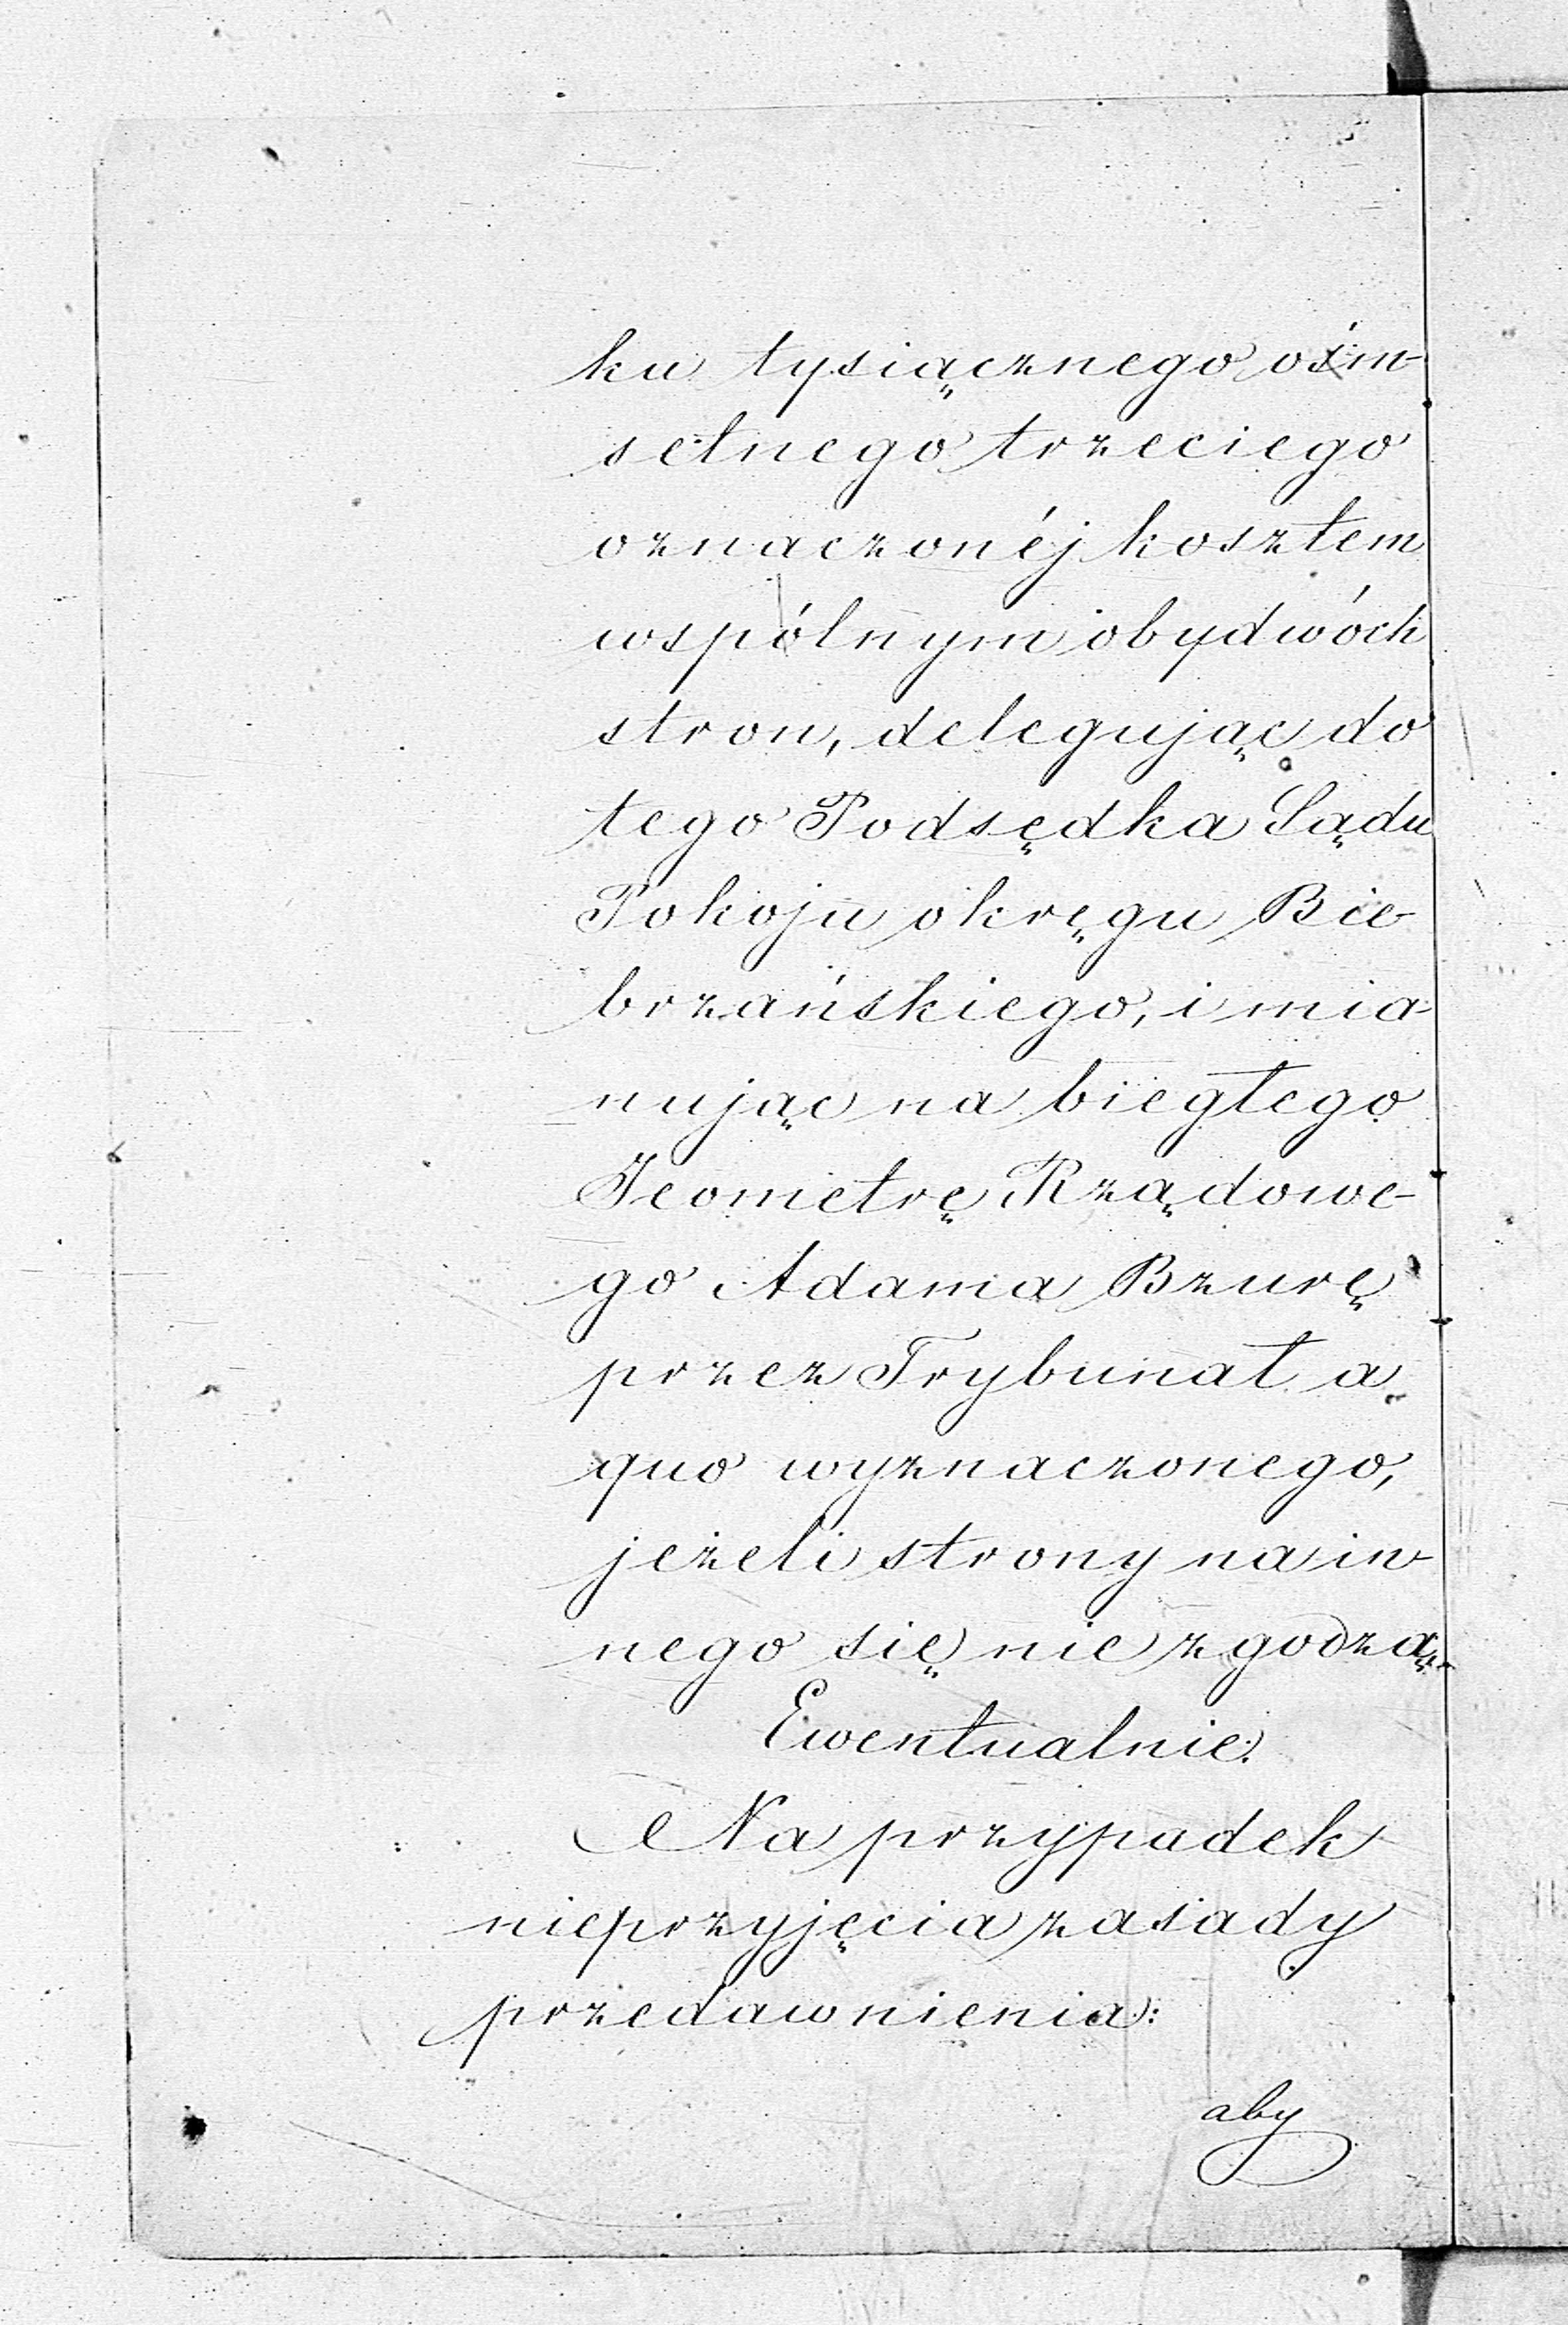 ku tysiącznego ośm-
setnego trzeciego
oznaczonéj kosztem
wspólnym obydwóch
stron, delegując do
tego Podsędka Sądu
Pokoju okręgu Bie-
brzańskiego, i mia-
nując na biegłego
Jeometrę Rządowe-
go Adama Bzurę
przez Trybunał a
quo wyznaczonego,
jeżeli strony na in-
nego się nie zgodzą.
Ewentualnie:
Na przypadek
nieprzyjęcia zasady
przedawnienia:
aby